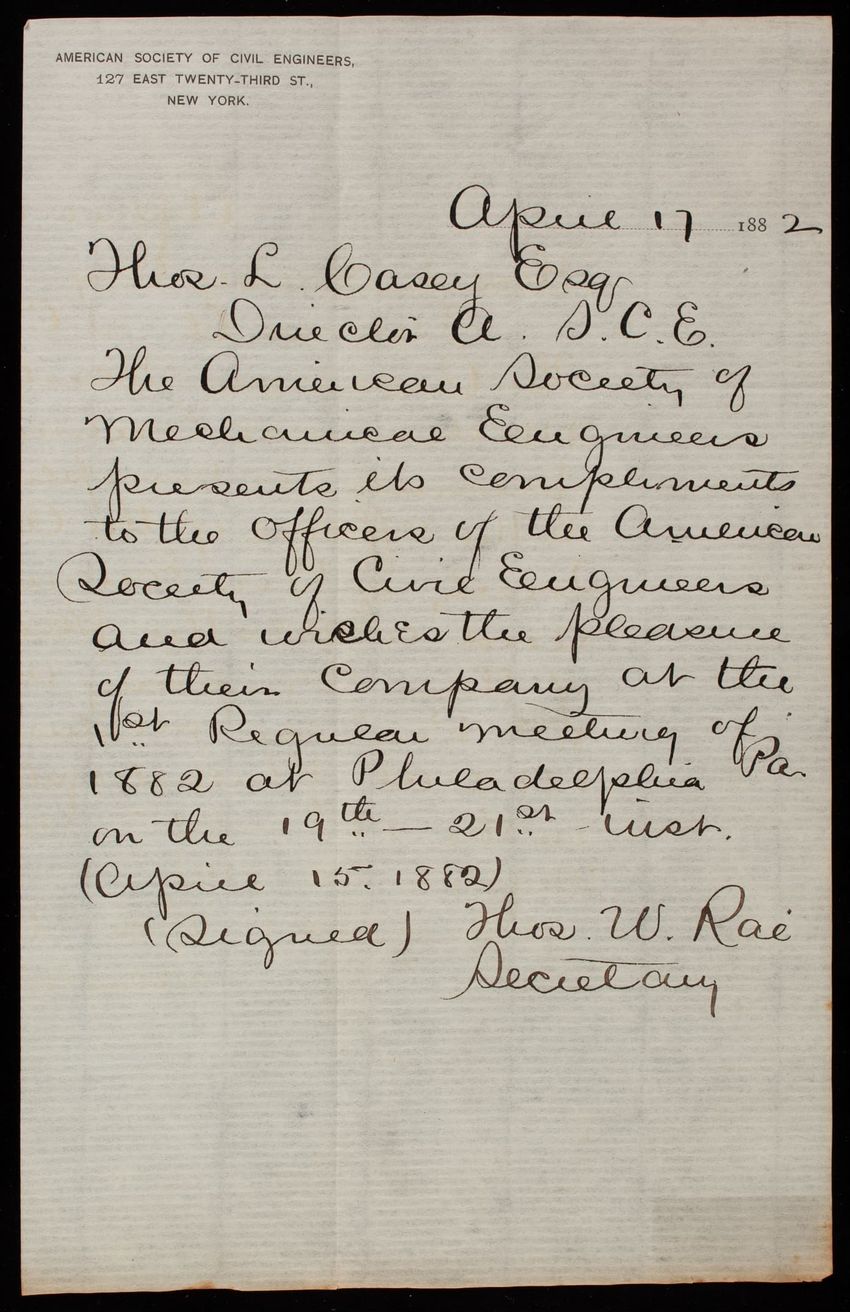 AMERICAN SOCIETY OF CIVIL ENGINEERS,
127 EAST TWENTY-THIRD ST.,
NEW YORK.
April 17 1882
Thos. L. Casey Esq
Director A. S. C. E.
The American Society of
Mechanical Engineers
presents its compliments
to the officers of the American
Society of Civil Engineers
and wishes the pleasure
of their company at the
1st Regular meeting of
1882 at Philadelphia Pa.
on the 19th — 21st inst.
(April 15. 1882)
(signed) Thos. W. Rae
Secretary